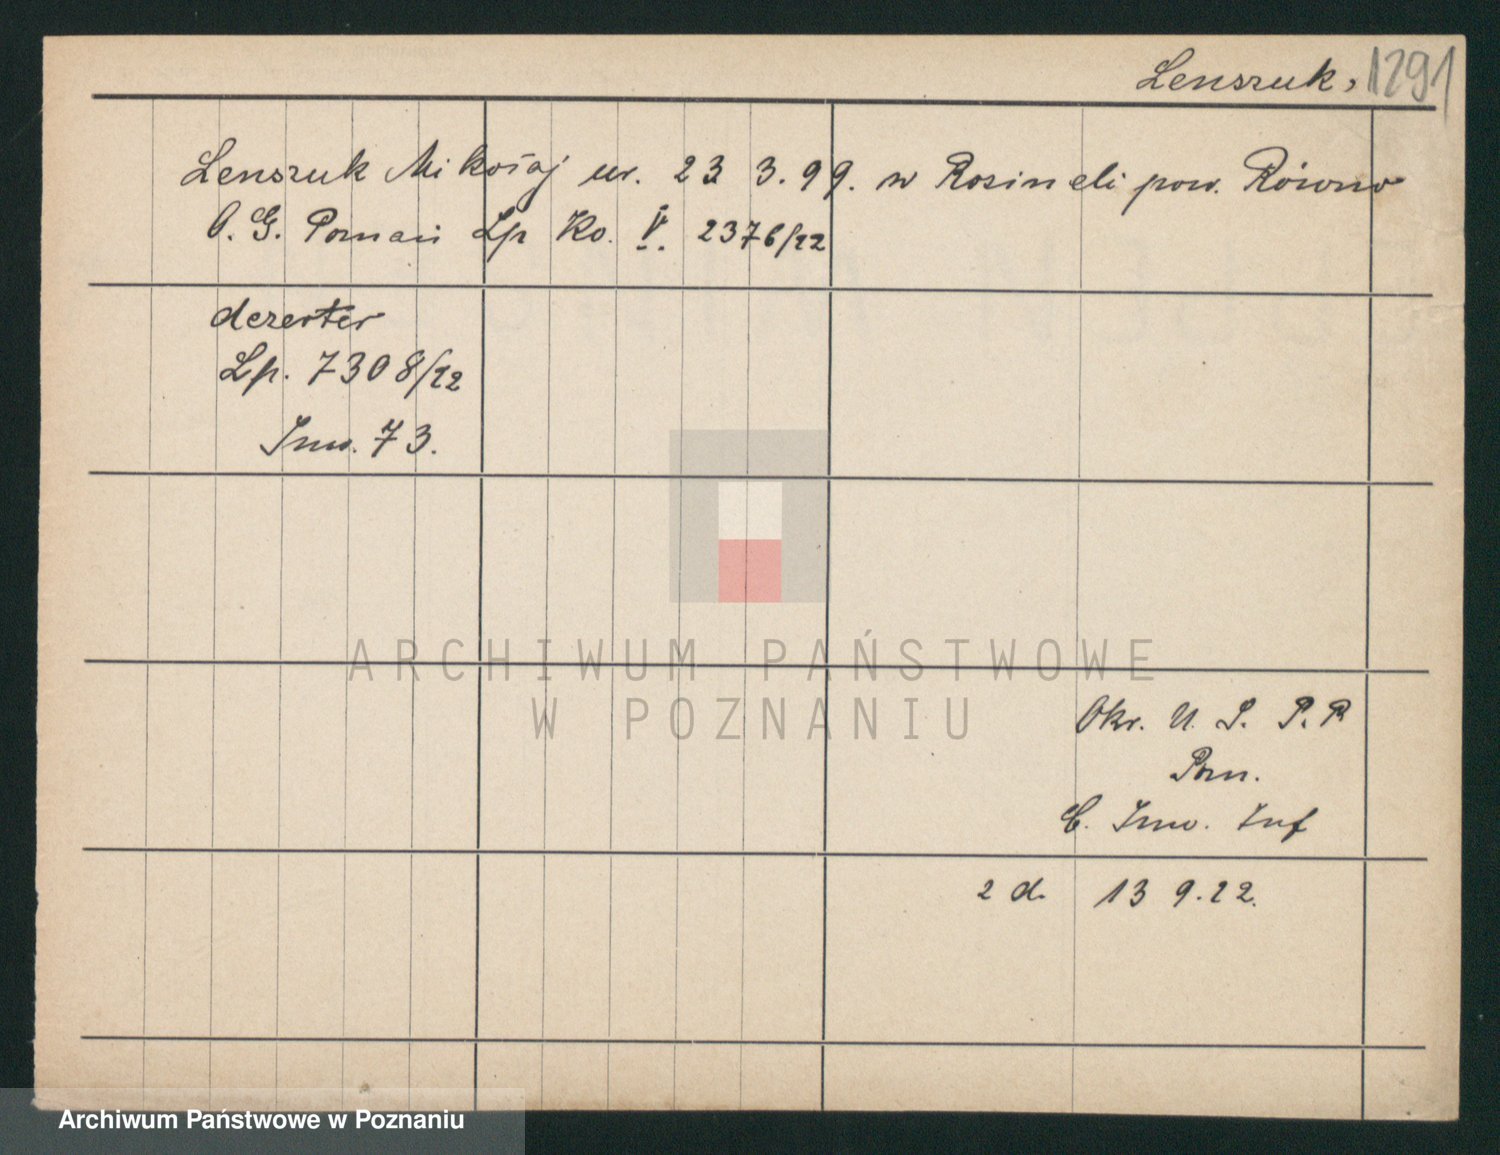 Lenszuk, 1291
Lenszuk Mikołaj ur. 23 3. 99. w Rosineli pow. Równo
O. G. Poznań Lp Ko. V. 2376/22
dezerter
Lp. 7308/22
Inw. 73.
ARCHIWUM PAŃSTWOWE
W POZNANIU
Okr. U. P. P.
Pozn.
Inw. Inf
2 d. 13 9. 22.
Archiwum Państwowe w Poznaniu